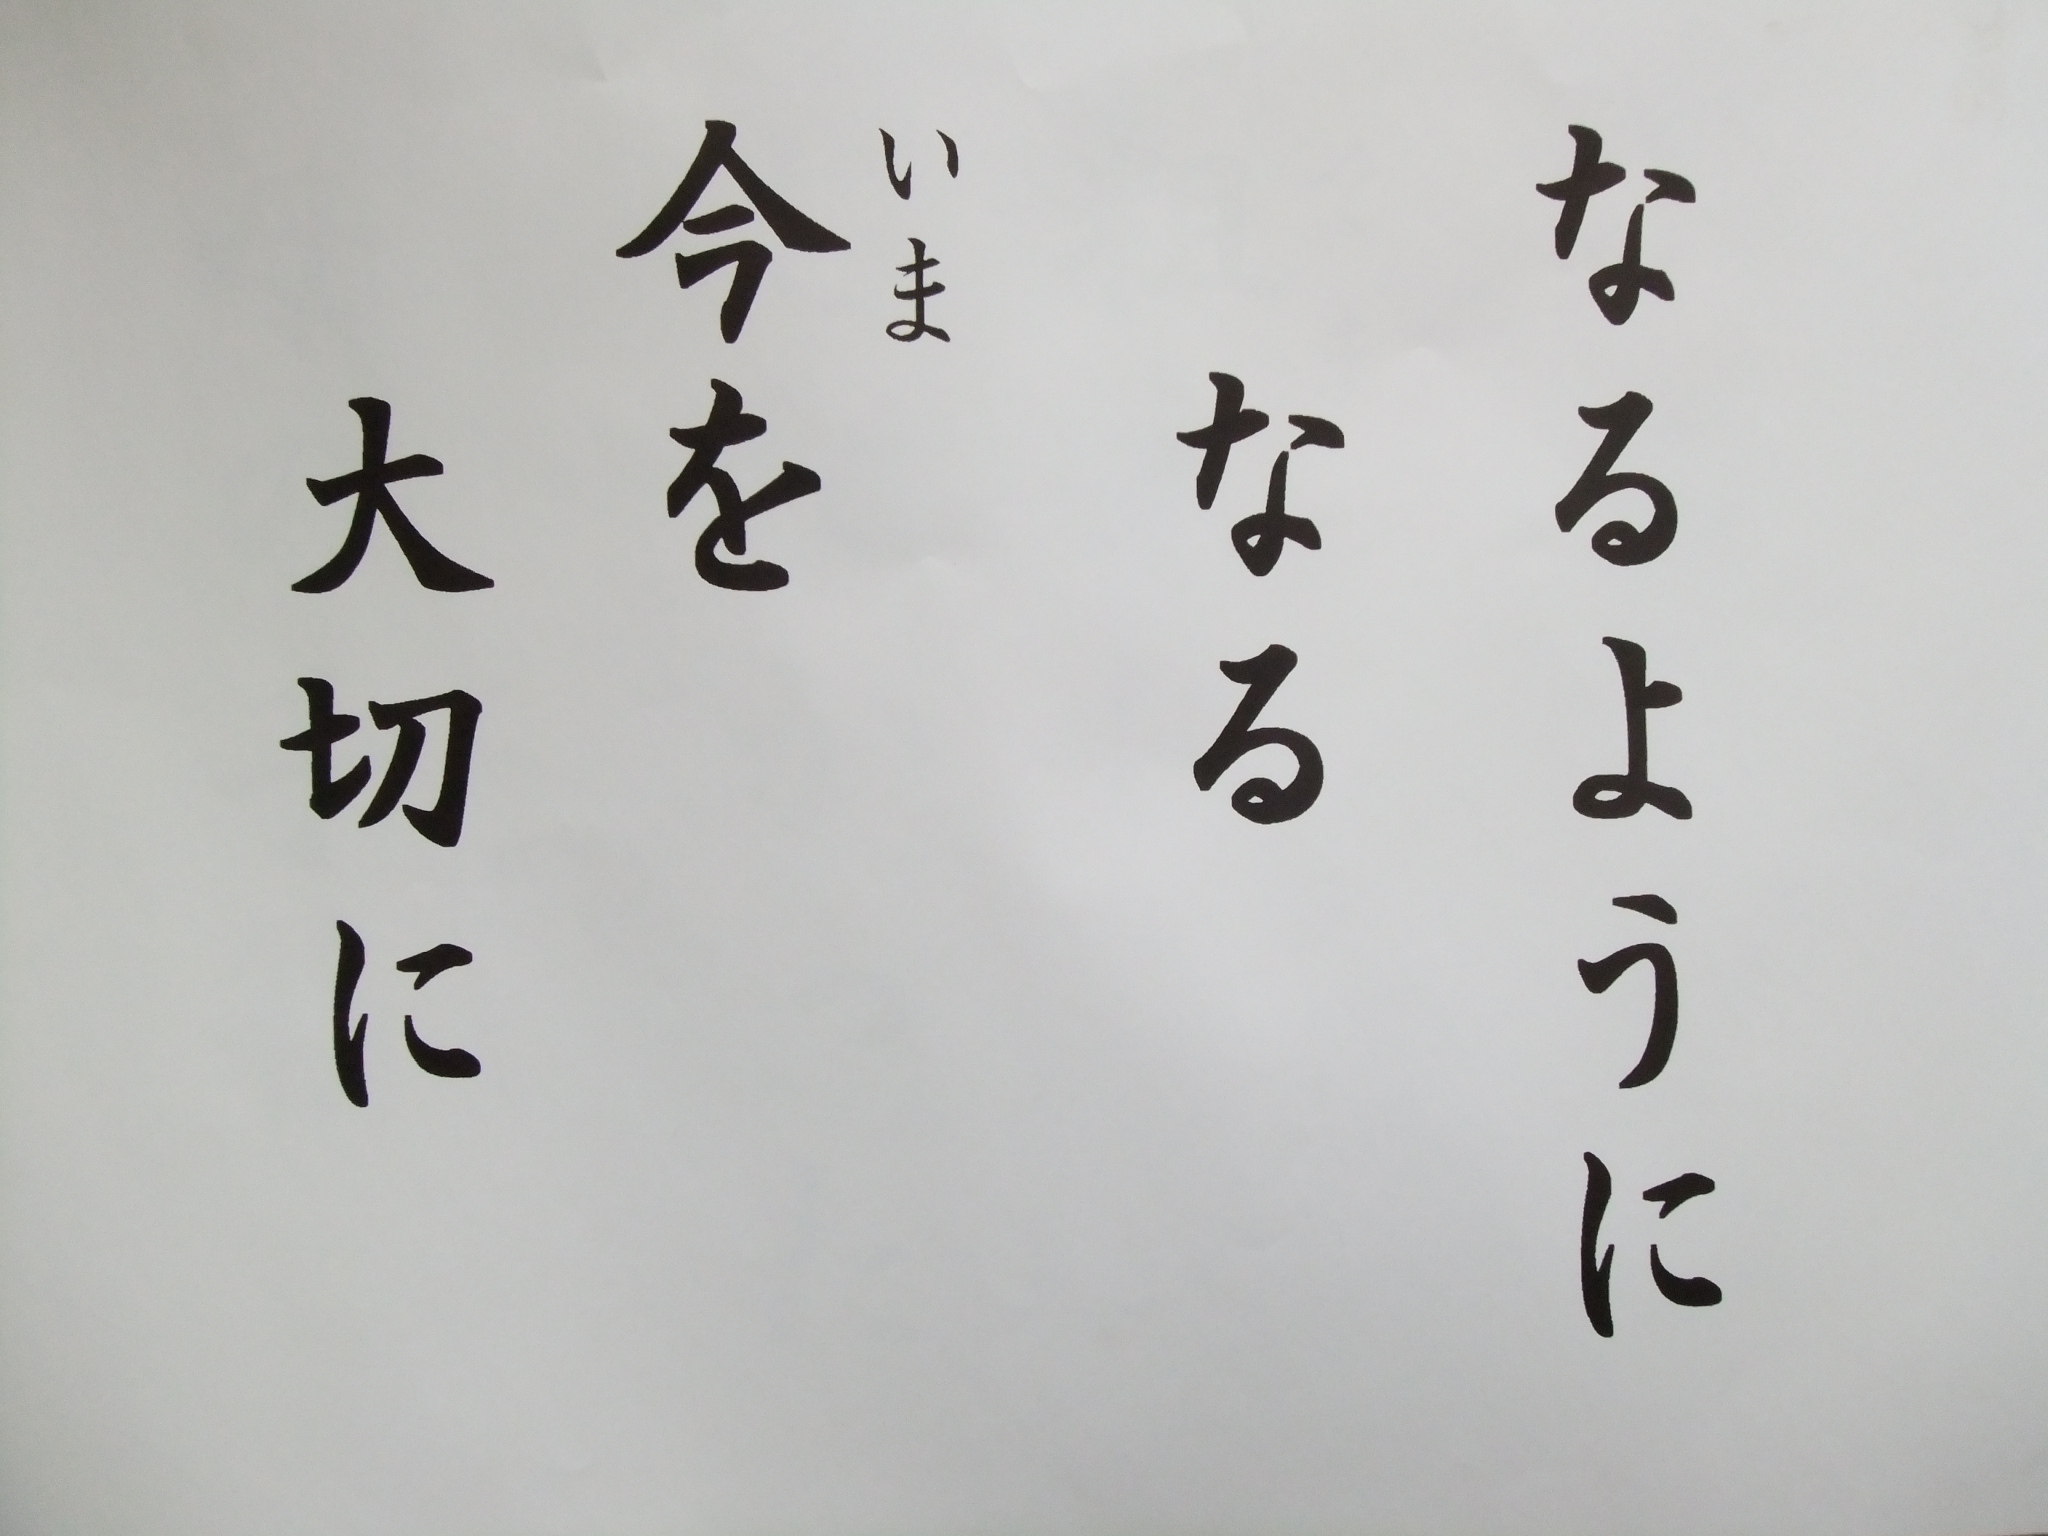 なるように
なる
いま
今を
大切に